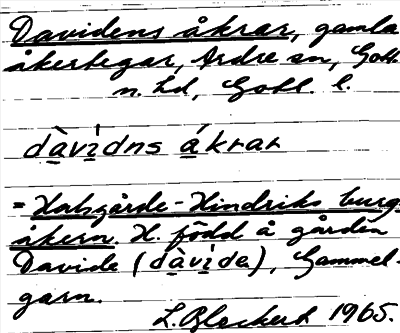 Davidens åkrar, gamla
åkertegar, Ardre sn, Gotl.
n. hd, Gotl. l.
dàvìdns ákrar
= Hahgårde-Hindriks burgs
åkern. H. född å gården
Davide (dàvìde), Gammel-
garn.
L. Bleckert 1965.